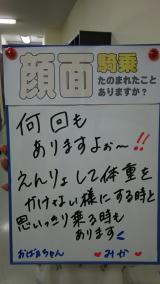 顔面騎乗
たのまれたこと
ありますか?
何回も
ありますよぉ〜!!
えんりょして体重を
かけない様にする時と
思いっきり乗る時も
あります
おばあちゃん ♥ みか ♥